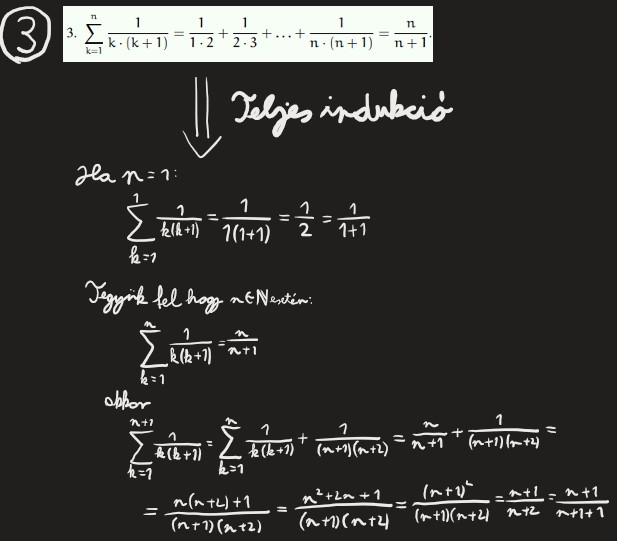 3
3. \sum_{k=1}^{n} \frac{1}{k \cdot (k+1)} = \frac{1}{1 \cdot 2} + \frac{1}{2 \cdot 3} + \ldots + \frac{1}{n \cdot (n+1)} = \frac{n}{n+1}.
Teljes indukció
Ha n = 1:
\sum_{k=1}^{1} \frac{1}{k(k+1)} = \frac{1}{1(1+1)} = \frac{1}{2} = \frac{1}{1+1}
Tegyük fel hogy n∈ℕ esetén:
\sum_{k=1}^{n} \frac{1}{k(k+1)} = \frac{n}{n+1}
akkor
\sum_{k=1}^{n+1} \frac{1}{k(k+1)} = \sum_{k=1}^{n} \frac{1}{k(k+1)} + \frac{1}{(n+1)(n+2)} = \frac{n}{n+1} + \frac{1}{(n+1)(n+2)} =
= \frac{n(n+2)+1}{(n+1)(n+2)} = \frac{n^2+2n+1}{(n+1)(n+2)} = \frac{(n+1)^2}{(n+1)(n+2)} = \frac{n+1}{n+2} = \frac{n+1}{n+1+1}